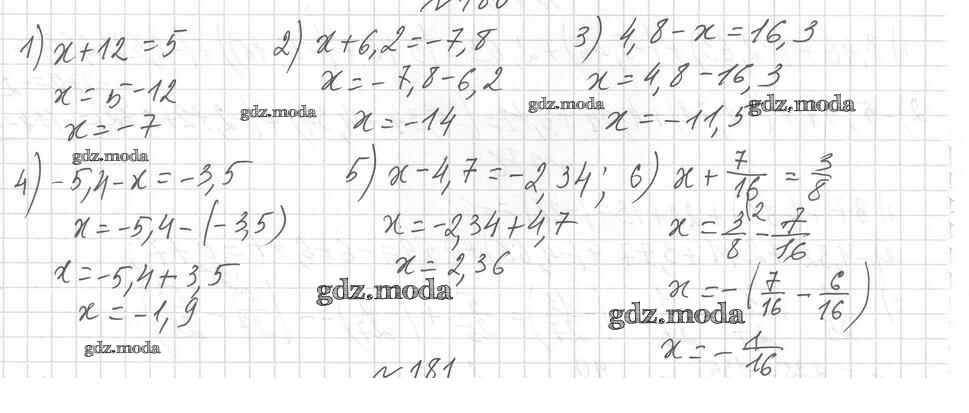 №180
1) x+12=5
x=5-12
x=-7
2) x+6,2=-7,8
x=-7,8-6,2
x=-14
3) 4,8-x=16,3
x=4,8-16,3
x=-11,5
4) -5,4-x=-3,5
x=-5,4-(-3,5)
x=-5,4+3,5
x=-1,9
5) x-4,7=-2,34;
x=-2,34+4,7
x=2,36
6) x+7/16=3/8
x=3/8^(2-7/16
x=-(7/16-6/16)
x=-1/16
№181
gdz.moda
gdz.moda
gdz.moda
gdz.moda
gdz.moda
gdz.moda
gdz.moda